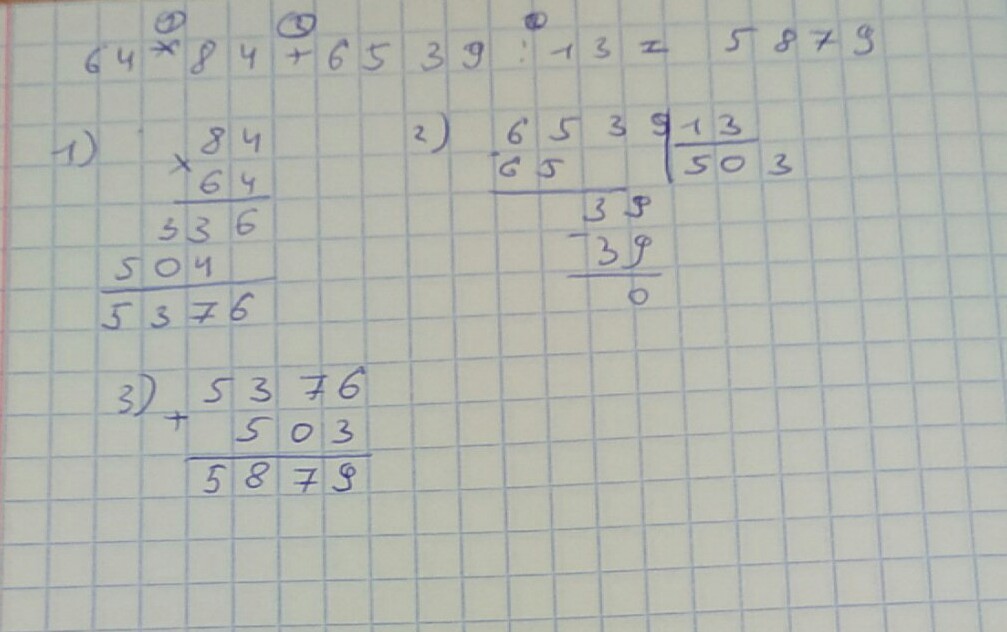 64 × 84 + 6539 : 13 = 5879
1)
× 84
64
336
504
5376
2)
6539 | 13
- 65
503
39
- 39
0
3)
+ 5376
503
5879